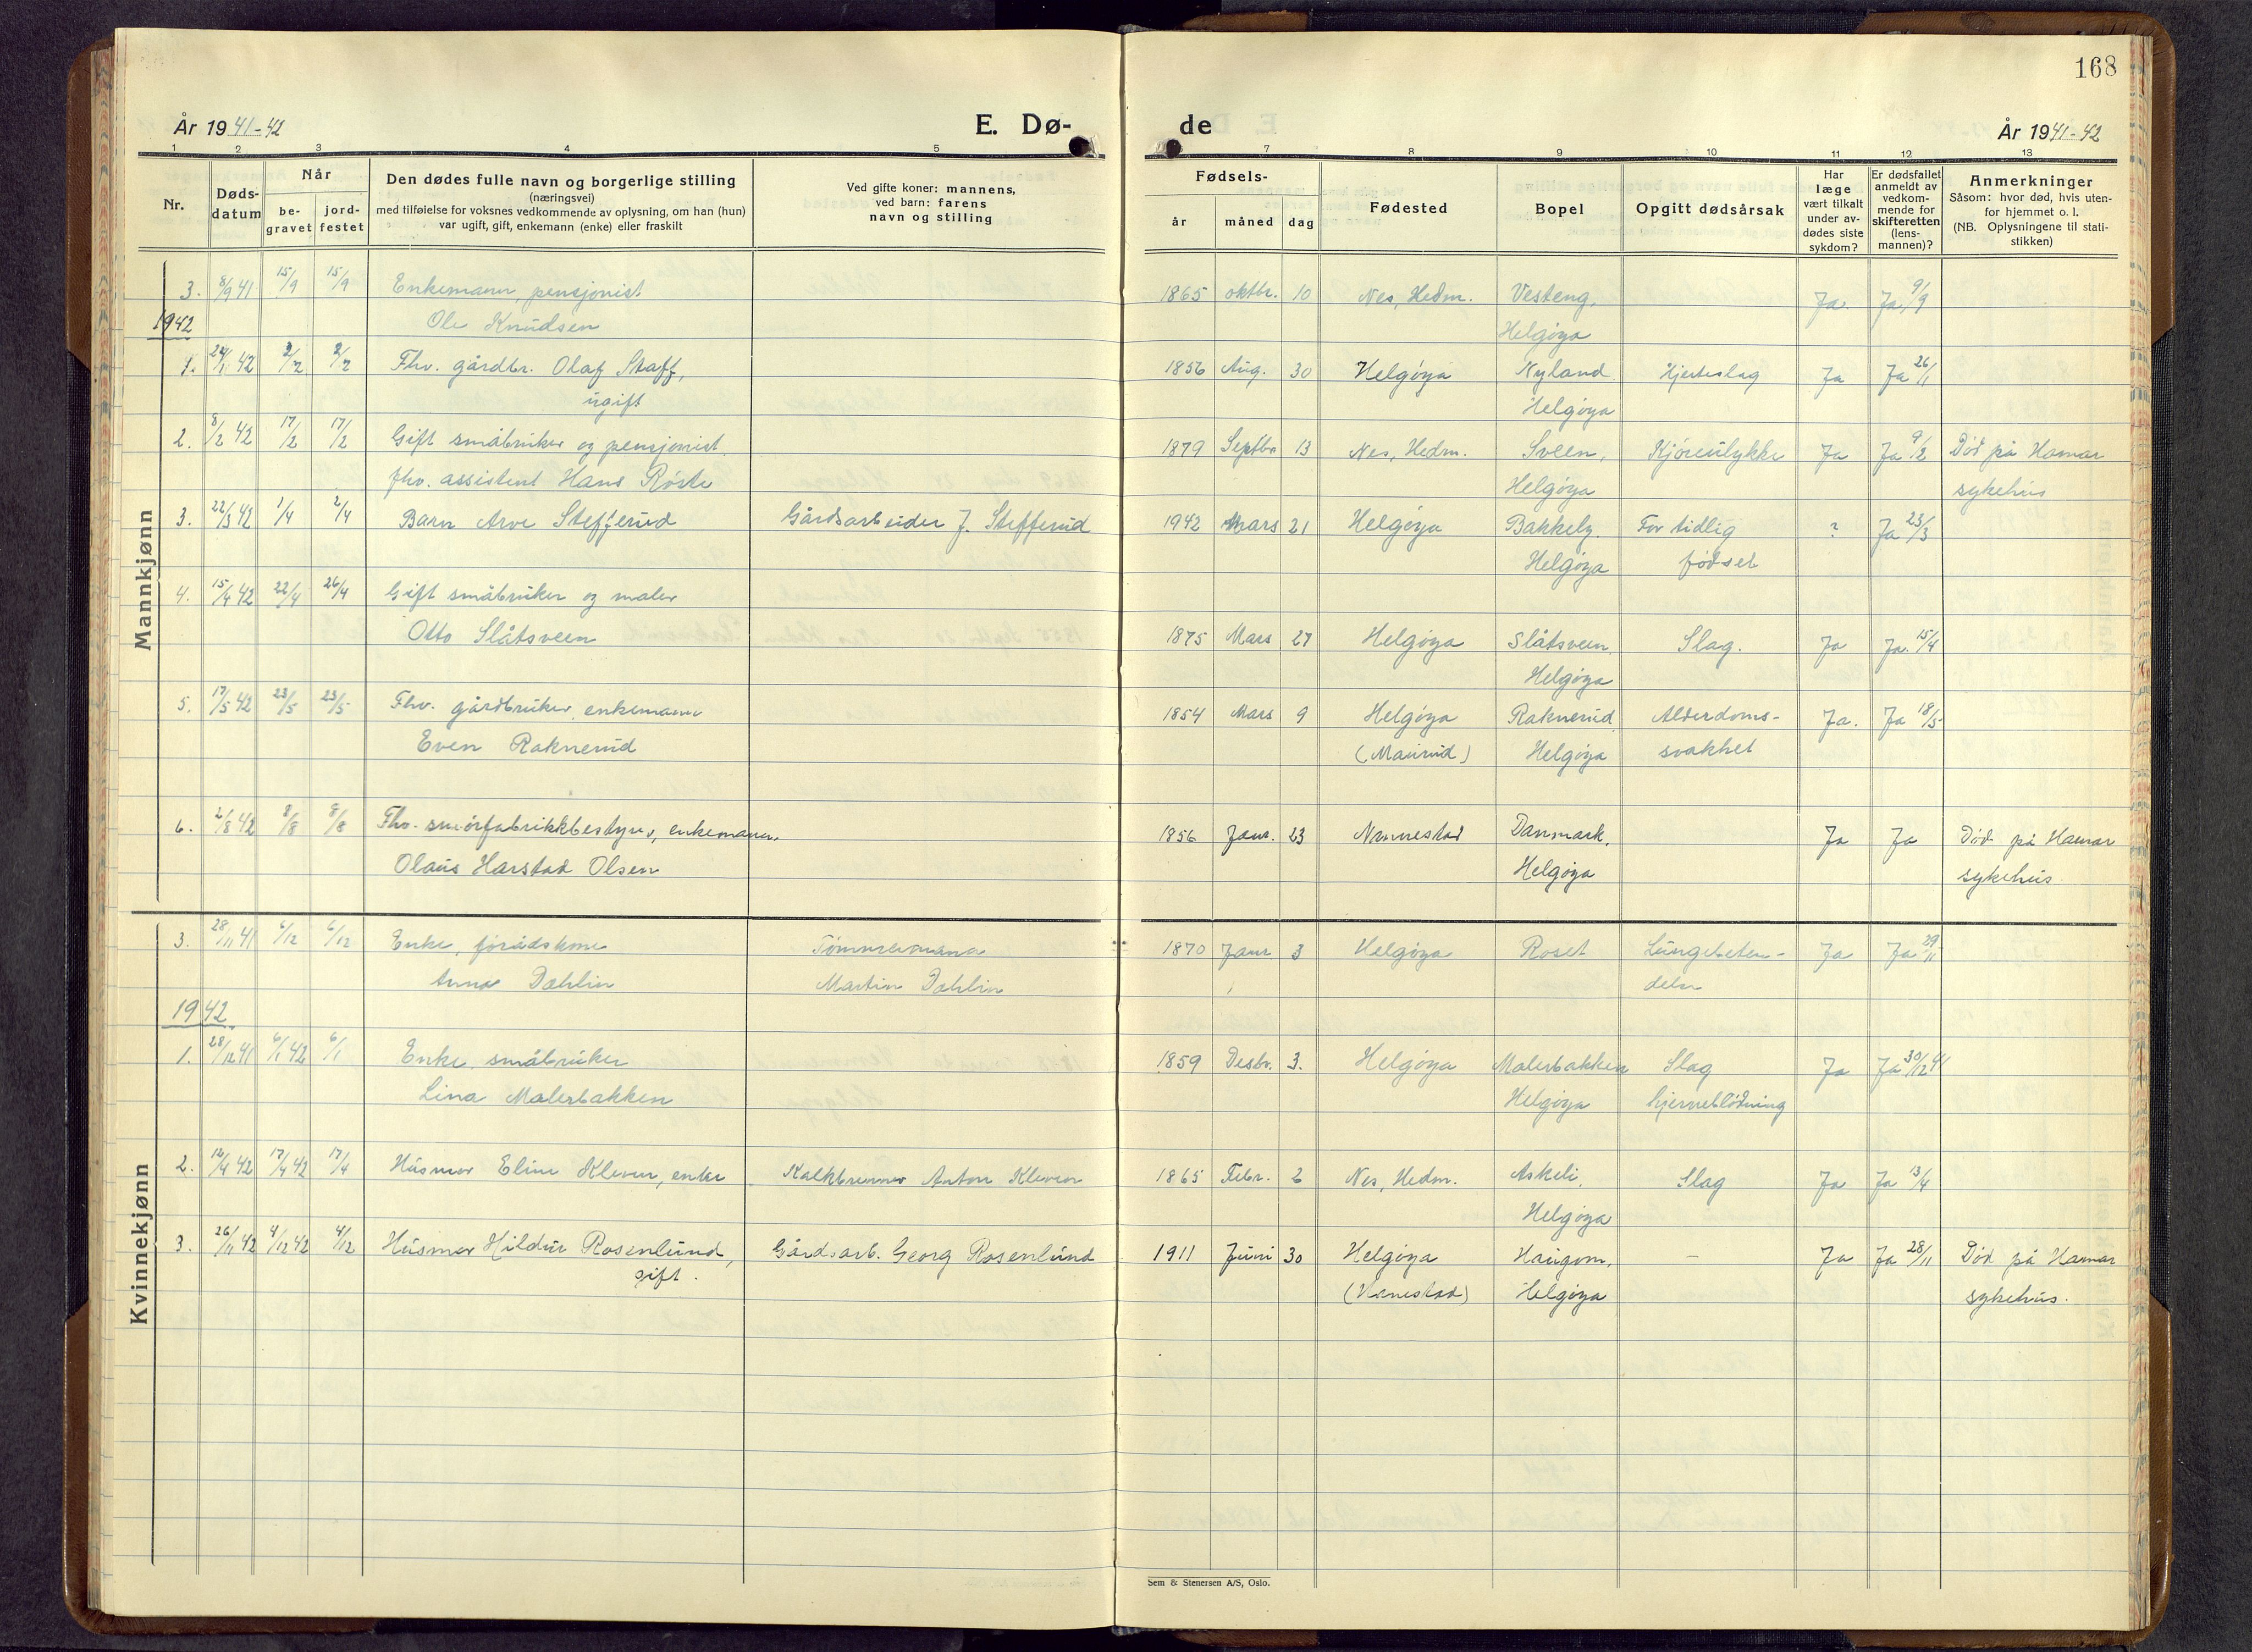 168
År 1941-42
E. Dø-
de
År 1941-42
1 2 3 4 5
7 8 9 10 11 12 13
Nr.
Døds-
datum
Når
be-
gravet
jord-
festet
Den dødes fulle navn og borgerlige stilling
(næringsvei)
med tilføielse for voksnes vedkommende av oplysning, om han (hun)
var ugift, gift, enkemann (enke) eller fraskilt
Ved gifte koner: mannens,
ved barn: farens
navn og stilling
Fødsels-
år måned dag
Fødested
Bopel
Opgitt dødsårsak
Har
læge
vært tilkalt
under av-
dødes siste
sykdom?
Er dødsfallet
anmeldt av
vedkom-
mende for
skifteretten
(lens-
mannen)?
Anmerkninger
Såsom: hvor død, hvis uten-
for hjemmet o. l.
(NB. Oplysningene til stati-
stikken)
Mannkjønn
3. 8/9 41 15/9 15/9 Enkemann, pensjonist 1865 oktbr. 10 Nes, Hedm. Vesteng, Ja. Ja 9/9
1942 Ole Knudsen Helgøya
1. 24/1 42 2/2 2/2 Fhv. gårdbr. Olaf Staff, 1856 Aug. 30 Helgøya Nyland Hjerteslag Ja Ja 26/1
ugift Helgøya
2. 8/2 42 17/2 17/2 Gift småbruker og pensjonist 1879 Septbr 13 Nes, Hedm. Sveen, Kjøreulykke Ja Ja 9/2 Død på Hamar
fhv. assistent Hans Røste Helgøya sykehus
3. 22/3 42 1/4 2/4 Barn Arve Stefferud Gårdsarbeider J. Stefferud 1942 Mars 21 Helgøya Bakkely. For tidlig ? Ja 23/3
Helgøya fødsel
4. 15/4 42 22/4 26/4 Gift småbruker og maler
Otto Slåtsveen 1875 Mars 27 Helgøya Slåtsveen Slag. Ja Ja. 15/4
Helgøya
5. 17/5 42 23/5 23/5 Fhv. gårdbruker, enkemann 1854 Mars 9 Helgøya Raknerud Alderdoms- Ja. Ja 18/5
Even Raknerud (Maurud) Helgøya svakhet
6. 2/8 42 8/8 8/8 Fhv. smørfabrikkbestyrer, enkemann. 1856 Janr. 23 Nannestad Danmark, Ja Ja Død på Hamar
Olaus Harstad Olsen Helgøya sykehus.
Kvinnekjønn
3. 28/11 41 6/12 6/12 Enke, forådskone Tømmermann 1870 Janr 3 Helgøya Roset Lungebeten- Ja Ja 29/11
Anna Dahlin Martin Dahlin delse
1942
1. 28/12 41 6/1 42 6/1 Enke, småbruker 1859 Desbr. 3. Helgøya Malerbakken Slag Ja Ja 30/12 41
Lina Malerbakken Helgøya hjerneblødning
2. 12/4 42 17/4 42 17/4 Husmor Eline Kleven, enke Kalkbrenner Anton Kleven 1865 Febr. 2 Nes, Hedm. Askeli, Slag Ja Ja 13/4
Helgøya
3. 26/11 42 4/12 42 4/12 Husmor Hildur Rosenlund, Gårdsarb. Georg Rosenlund 1911 Juni 30 Helgøya Haugom, – Ja Ja 28/11 Død på Hamar
gift. Helgøya sykehus.
Sem & Stenersen A/S, Oslo.